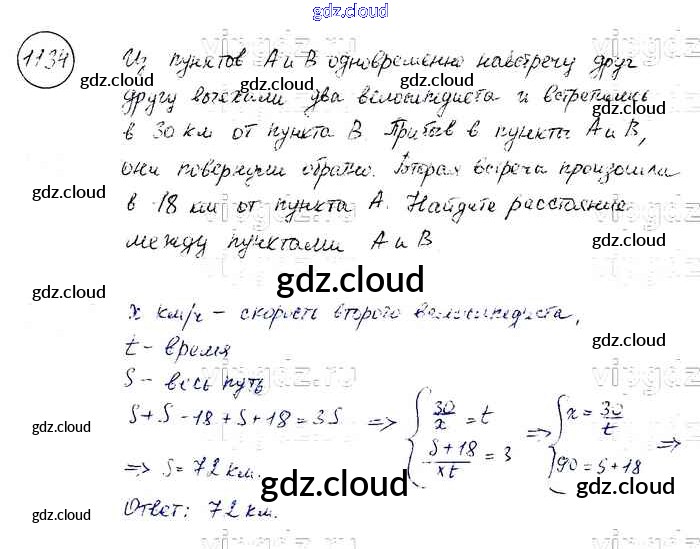 gdz.cloud
1134
Из пунктов А и В одновременно навстречу друг
gdz.cloud gdz.cloud
другу выехали два велосипедиста и встретились
в 30 км от пункта В. Прибыв в пункты А и В,
gdz.cloud
они повернули обратно. Вторая встреча произошла
gdz.cloud
в 18 км от пункта А. Найдите расстояние
между пунктами А и В
gdz.cloud
gdz.cloud
gdz.cloud
x км/ч – скорость второго велосипедиста,
t – время
gdz.cloud
S – весь путь
S + S - 18 + S + 18 = 3S => { 30/x = t => { x = 30/t =>
gdz.cloud
(S + 18)/xt = 3 90 = S + 18
=> S = 72 км.
gdz.cloud gdz.cloud
Ответ: 72 км.
gdz.cloud